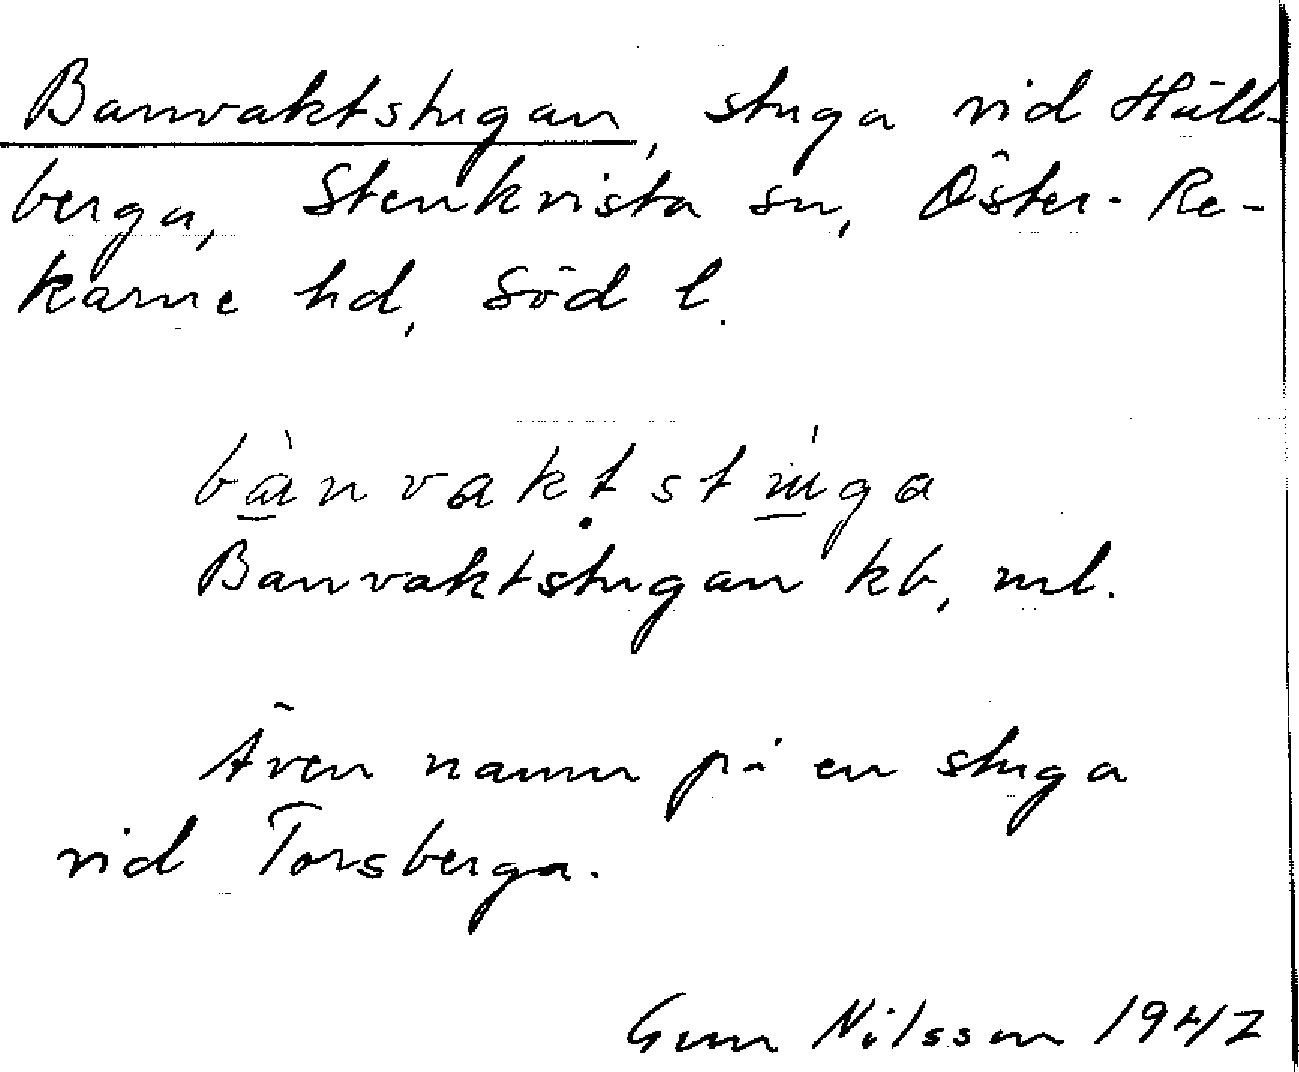 Banvaktstugan, stuga vid Häll-
berga, Stenkvista sn, Öster-Re-
karne hd, Söd l.
bànvaktstúga
Banvaktstugan kb, ml.
Även namn på en stuga
vid Torsberga.
Gun Nilsson 1942